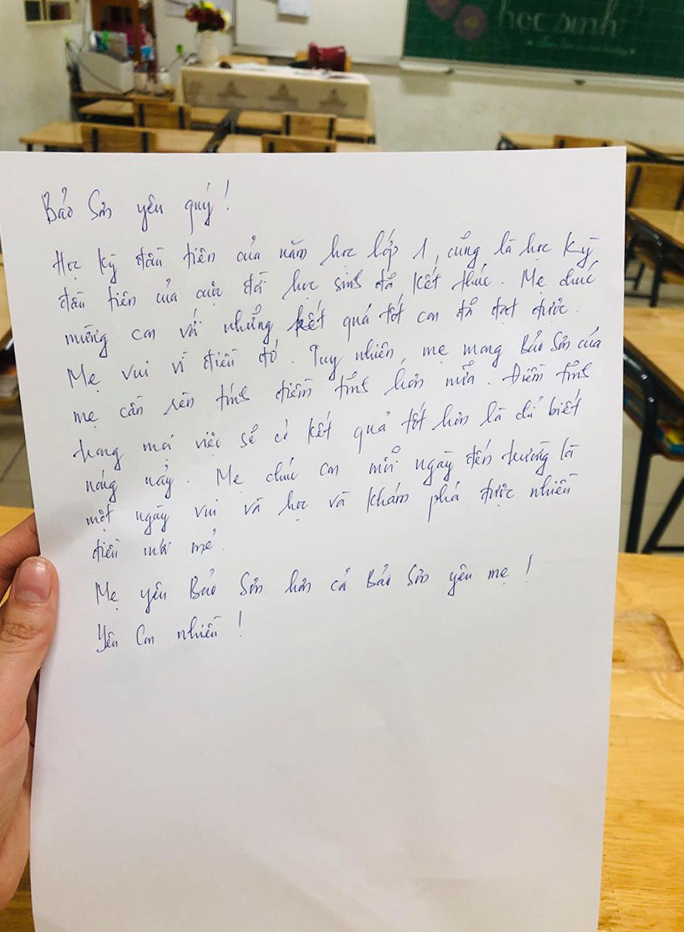 học sinh
Bảo Sơn yêu quý!
Học kỳ đầu tiên của năm học lớp 1, cũng là học kỳ
đầu tiên của cuộc đời học sinh đã kết thúc. Mẹ chúc
mừng con với những kết quả tốt con đã đạt được.
Mẹ vui vì điều đó. Tuy nhiên, mẹ mong Bảo Sơn của
mẹ cần rèn tính điềm tĩnh hơn nữa. Điềm tĩnh
trong mọi việc sẽ có kết quả tốt hơn là chỉ biết
nóng nảy. Mẹ chúc con mỗi ngày đến trường là
một ngày vui và học và khám phá được nhiều
điều mới mẻ.
Mẹ yêu Bảo Sơn hơn cả Bảo Sơn yêu mẹ!
Yêu Con nhiều!